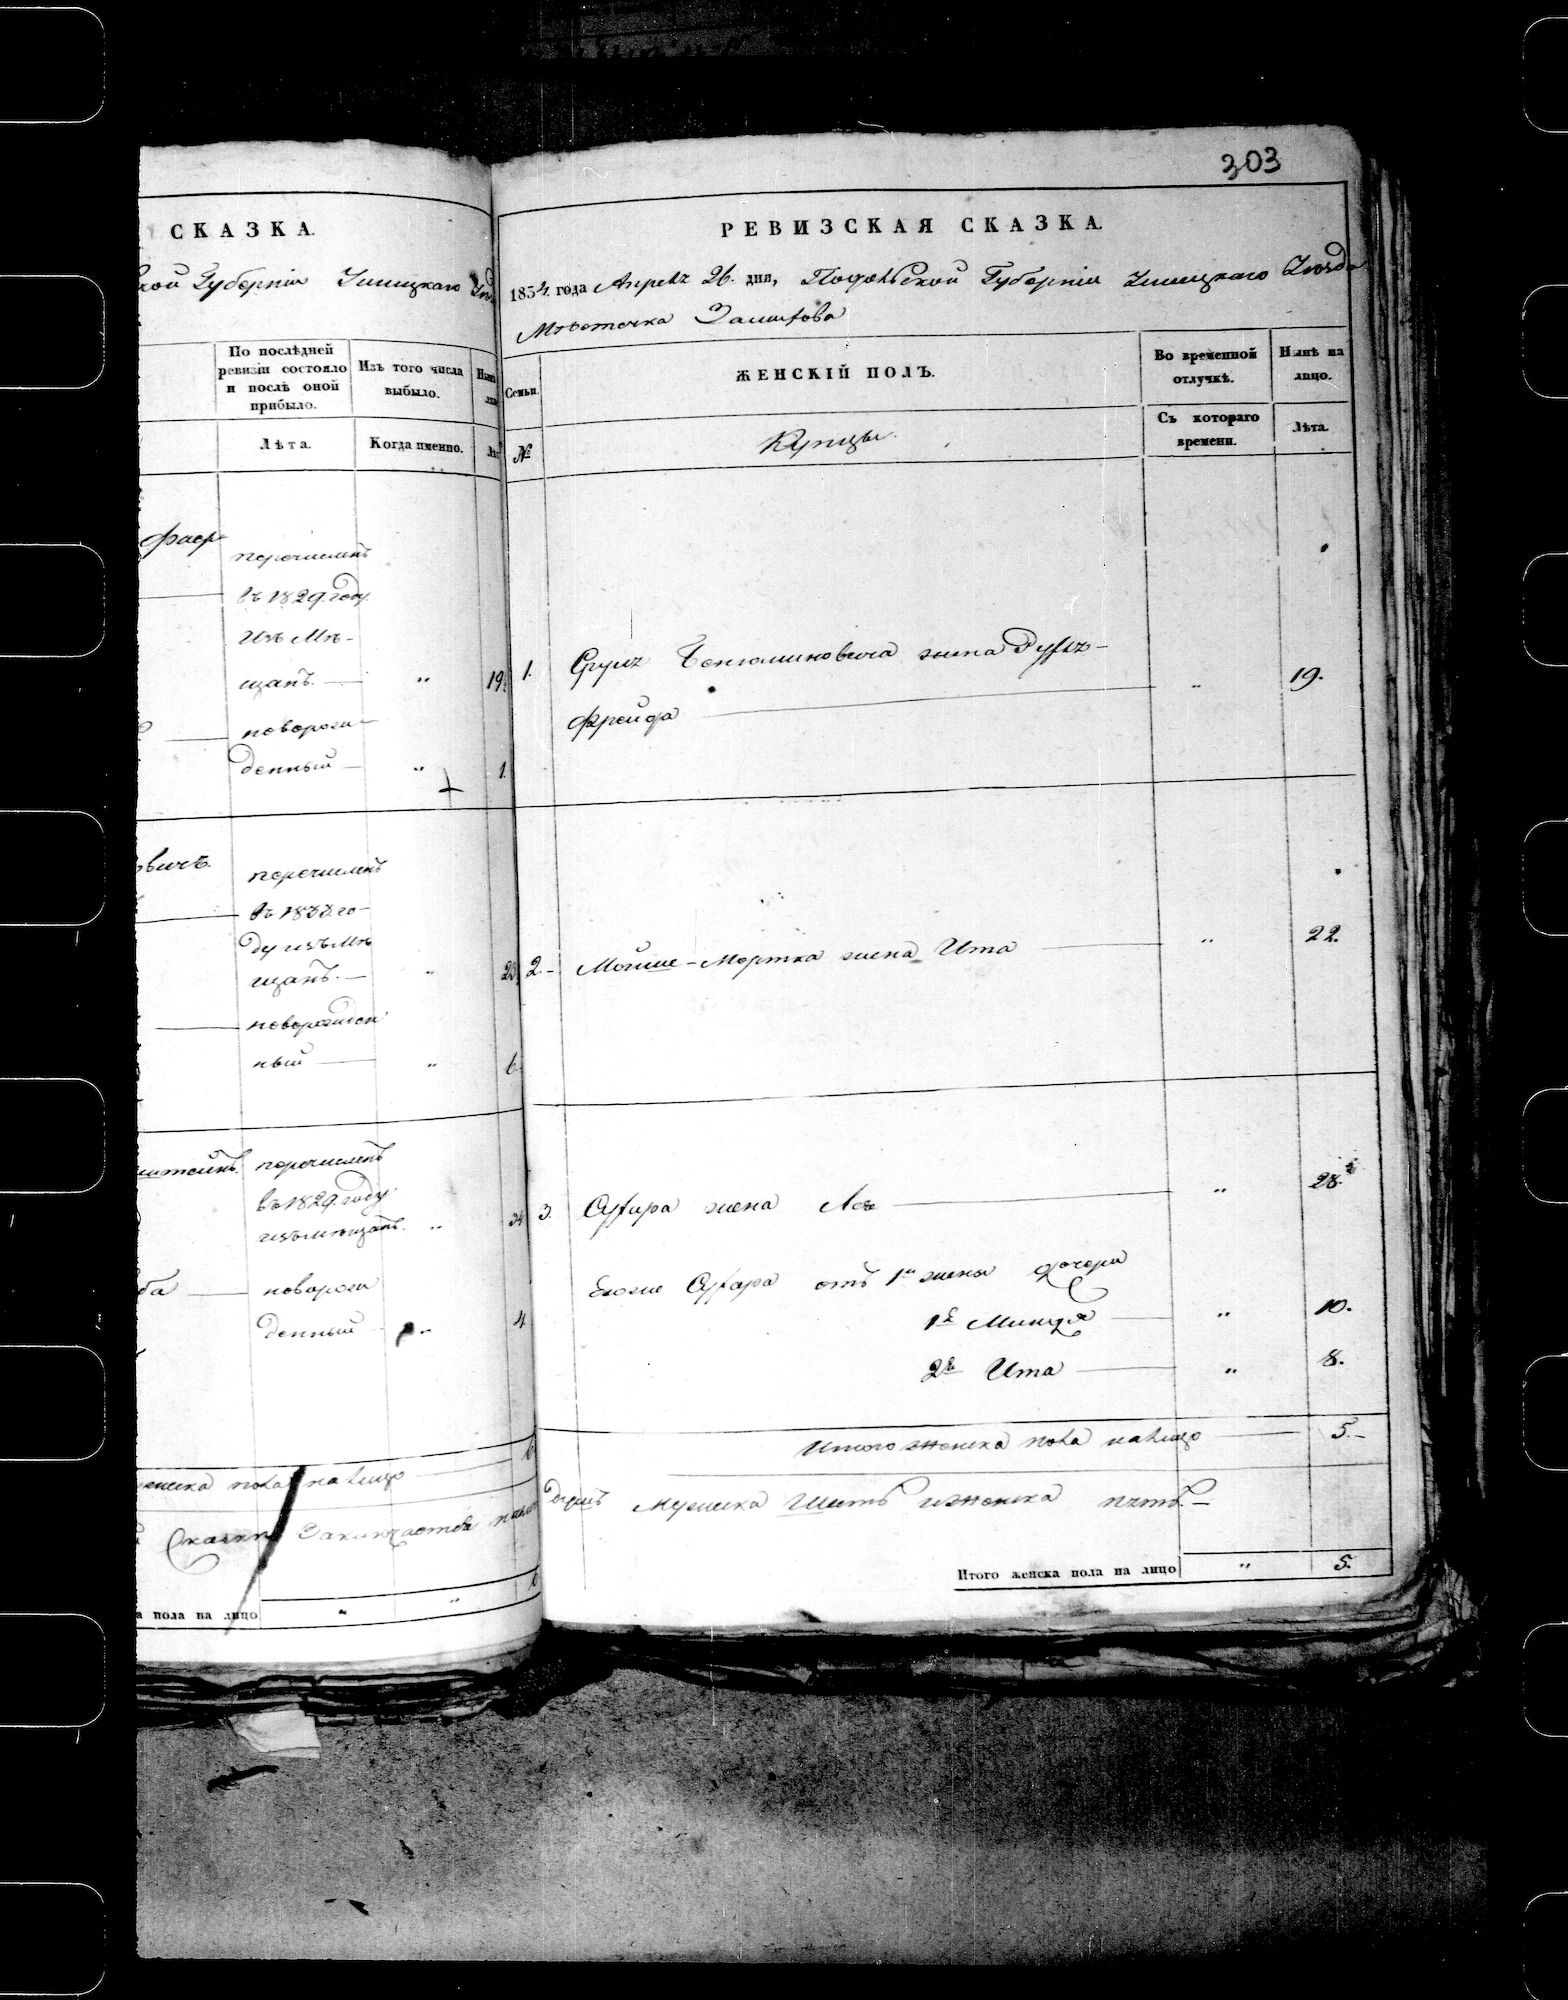 303
СКАЗКА.
кой Губернiи Ушицкаго Уѣз
По послѣдней
ревизiи состояло
и послѣ оной
прибыло.
Изъ того числа
выбыло.
Лѣта.
Когда именно.
перечисленъ
въ 1829. году
изъ Мѣ-
щанъ. — „ 19.
новорож-
денный — „ 1
евичъ. перечисленъ
ду изъ Мѣ
щанъ. — „
новорожден
ный — „ 6.
штейнъ. перечисленъ
въ 1829. году
изъ мѣщанъ. „
ба — новорож
денный „ 4
женска пола на лицо 6
Сказки Заключается
а пола на лицо „ „ 6
РЕВИЗСКАЯ СКАЗКА.
1834. года Апреля 26. дня, Подольской Губернiи Ушицкаго Уѣзда
Мѣстечка Замихова
Семьи.
ЖЕНСКIЙ ПОЛЪ.
Во временной
отлучкѣ.
Нынѣ на
лицо.
№
Купцы.
Съ котораго
времени.
Лѣта.
1. Сруля Бенюминовича жена Рухля-
Фрейда — „ 19.
2.- Мойше-Мортка жена Ита — „ 22.
3. Сухара жена Лея — „ 28.
Егоже Сухара отъ 1й жены дочери
1я Минця — „ 10.
2я Ита — „ 8.
Итого женска пола на лицо — 5.-
душъ Мужеска Шесть и женска пять.-
Итого женска пола на лицо „ 5.